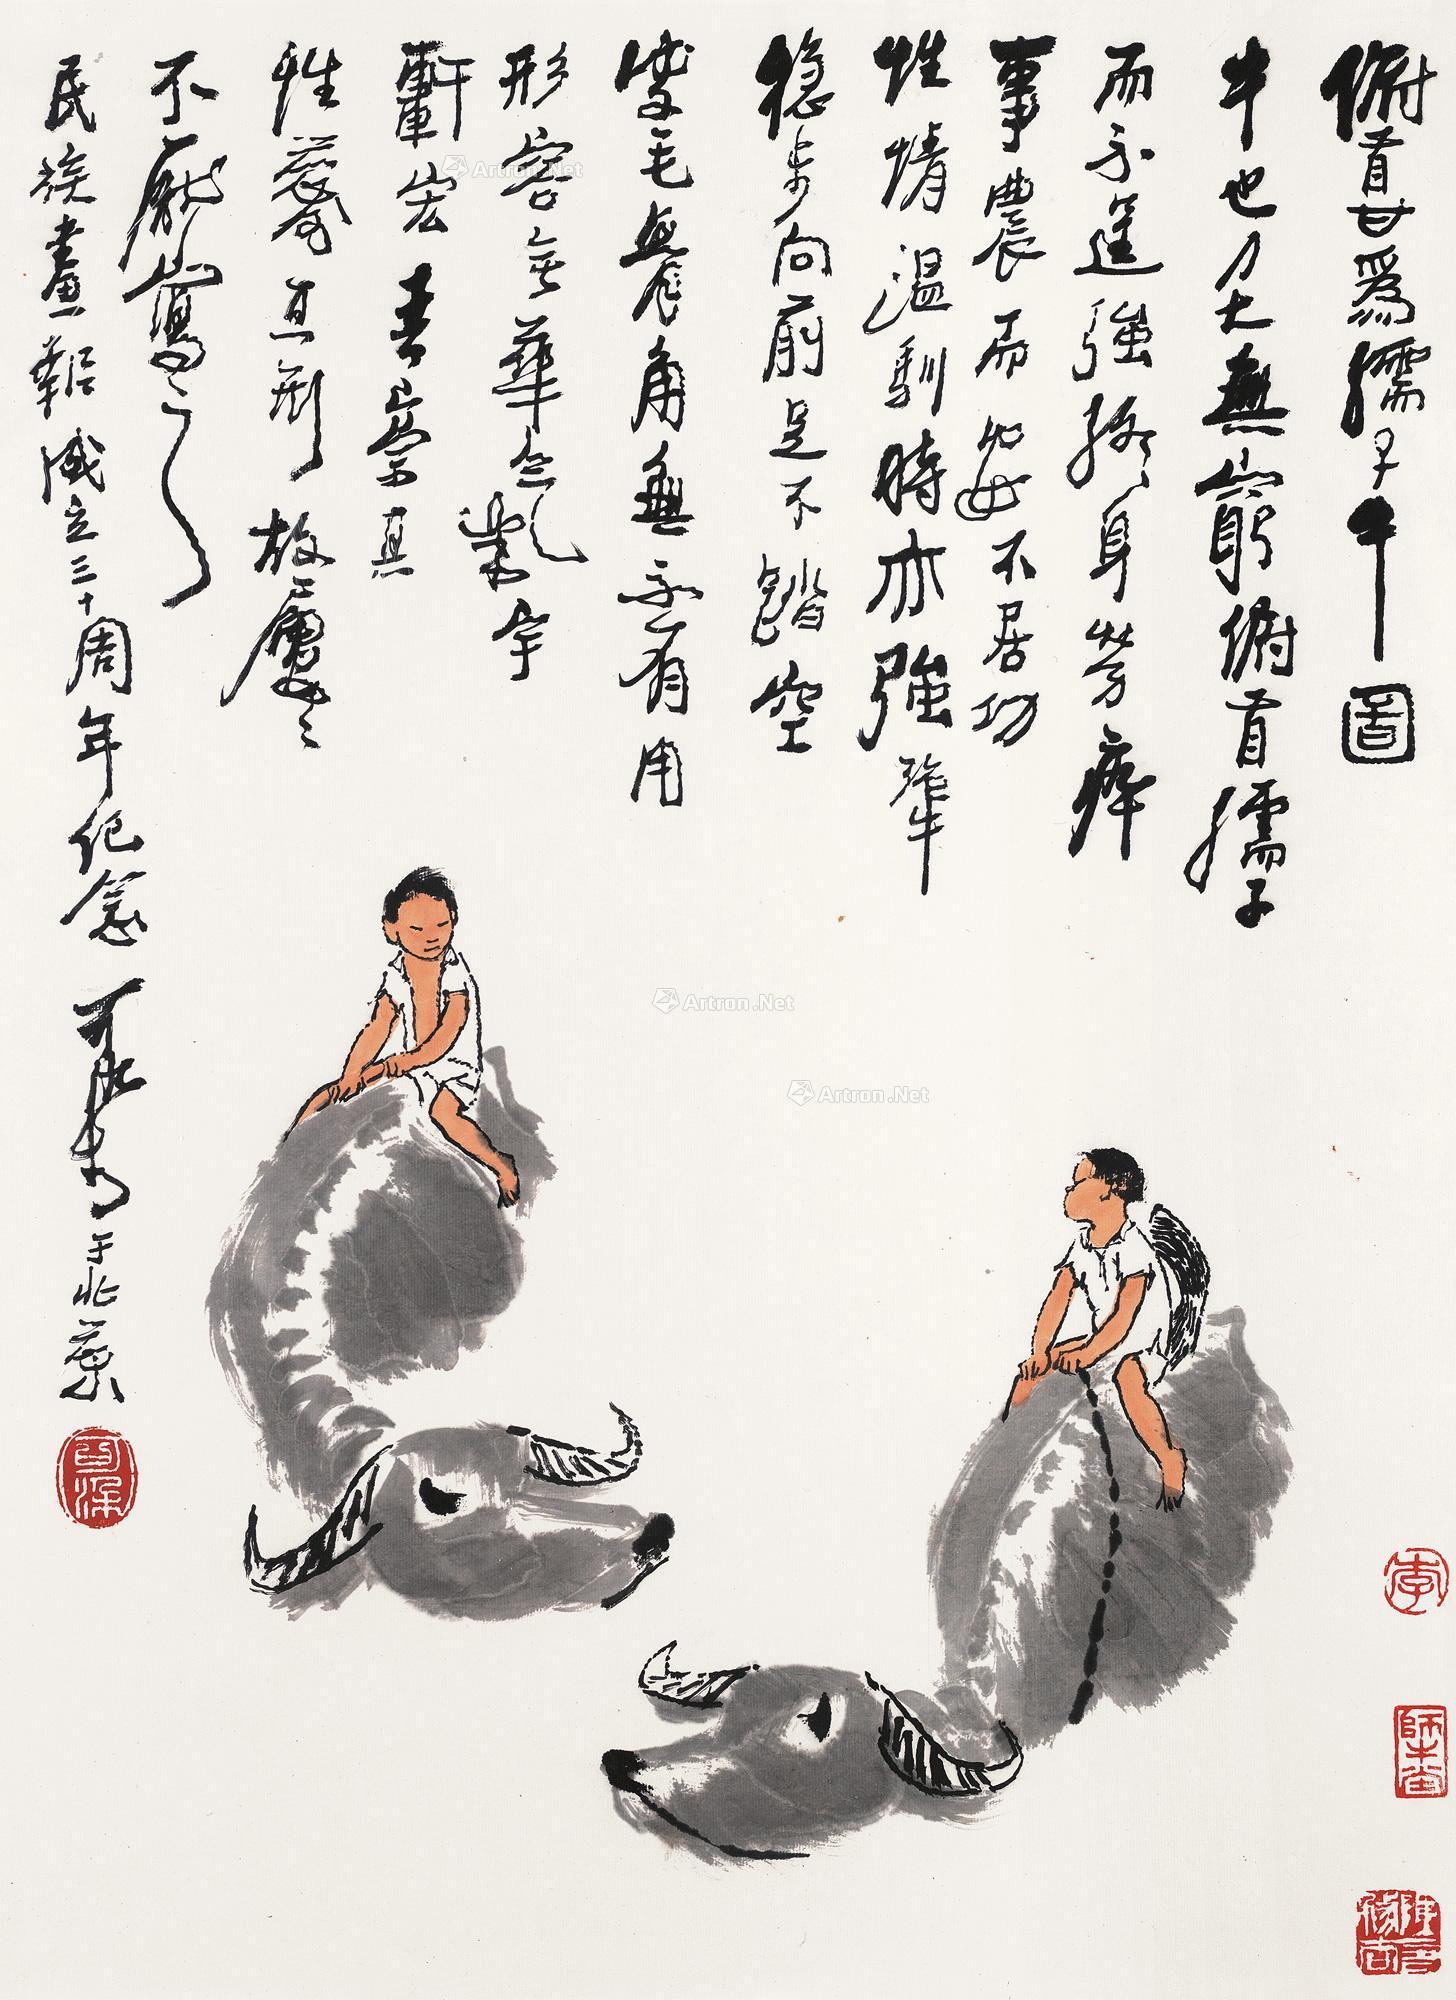 俯首甘為孺子牛圖
牛也力大無窮俯首孺子
而不逞強終身勞瘁
事農而安不居功
性情溫馴時亦強犟
穩步向前足不踏空
皮毛骨角無不有用
形容無華氣宇
軒宏吾崇其
性愛其形故屢屢
不厭寫之
民族畫報成立三十周年紀念
可染於北京
李
師牛堂
Artron.Net
Artron.Net
Artron.Net